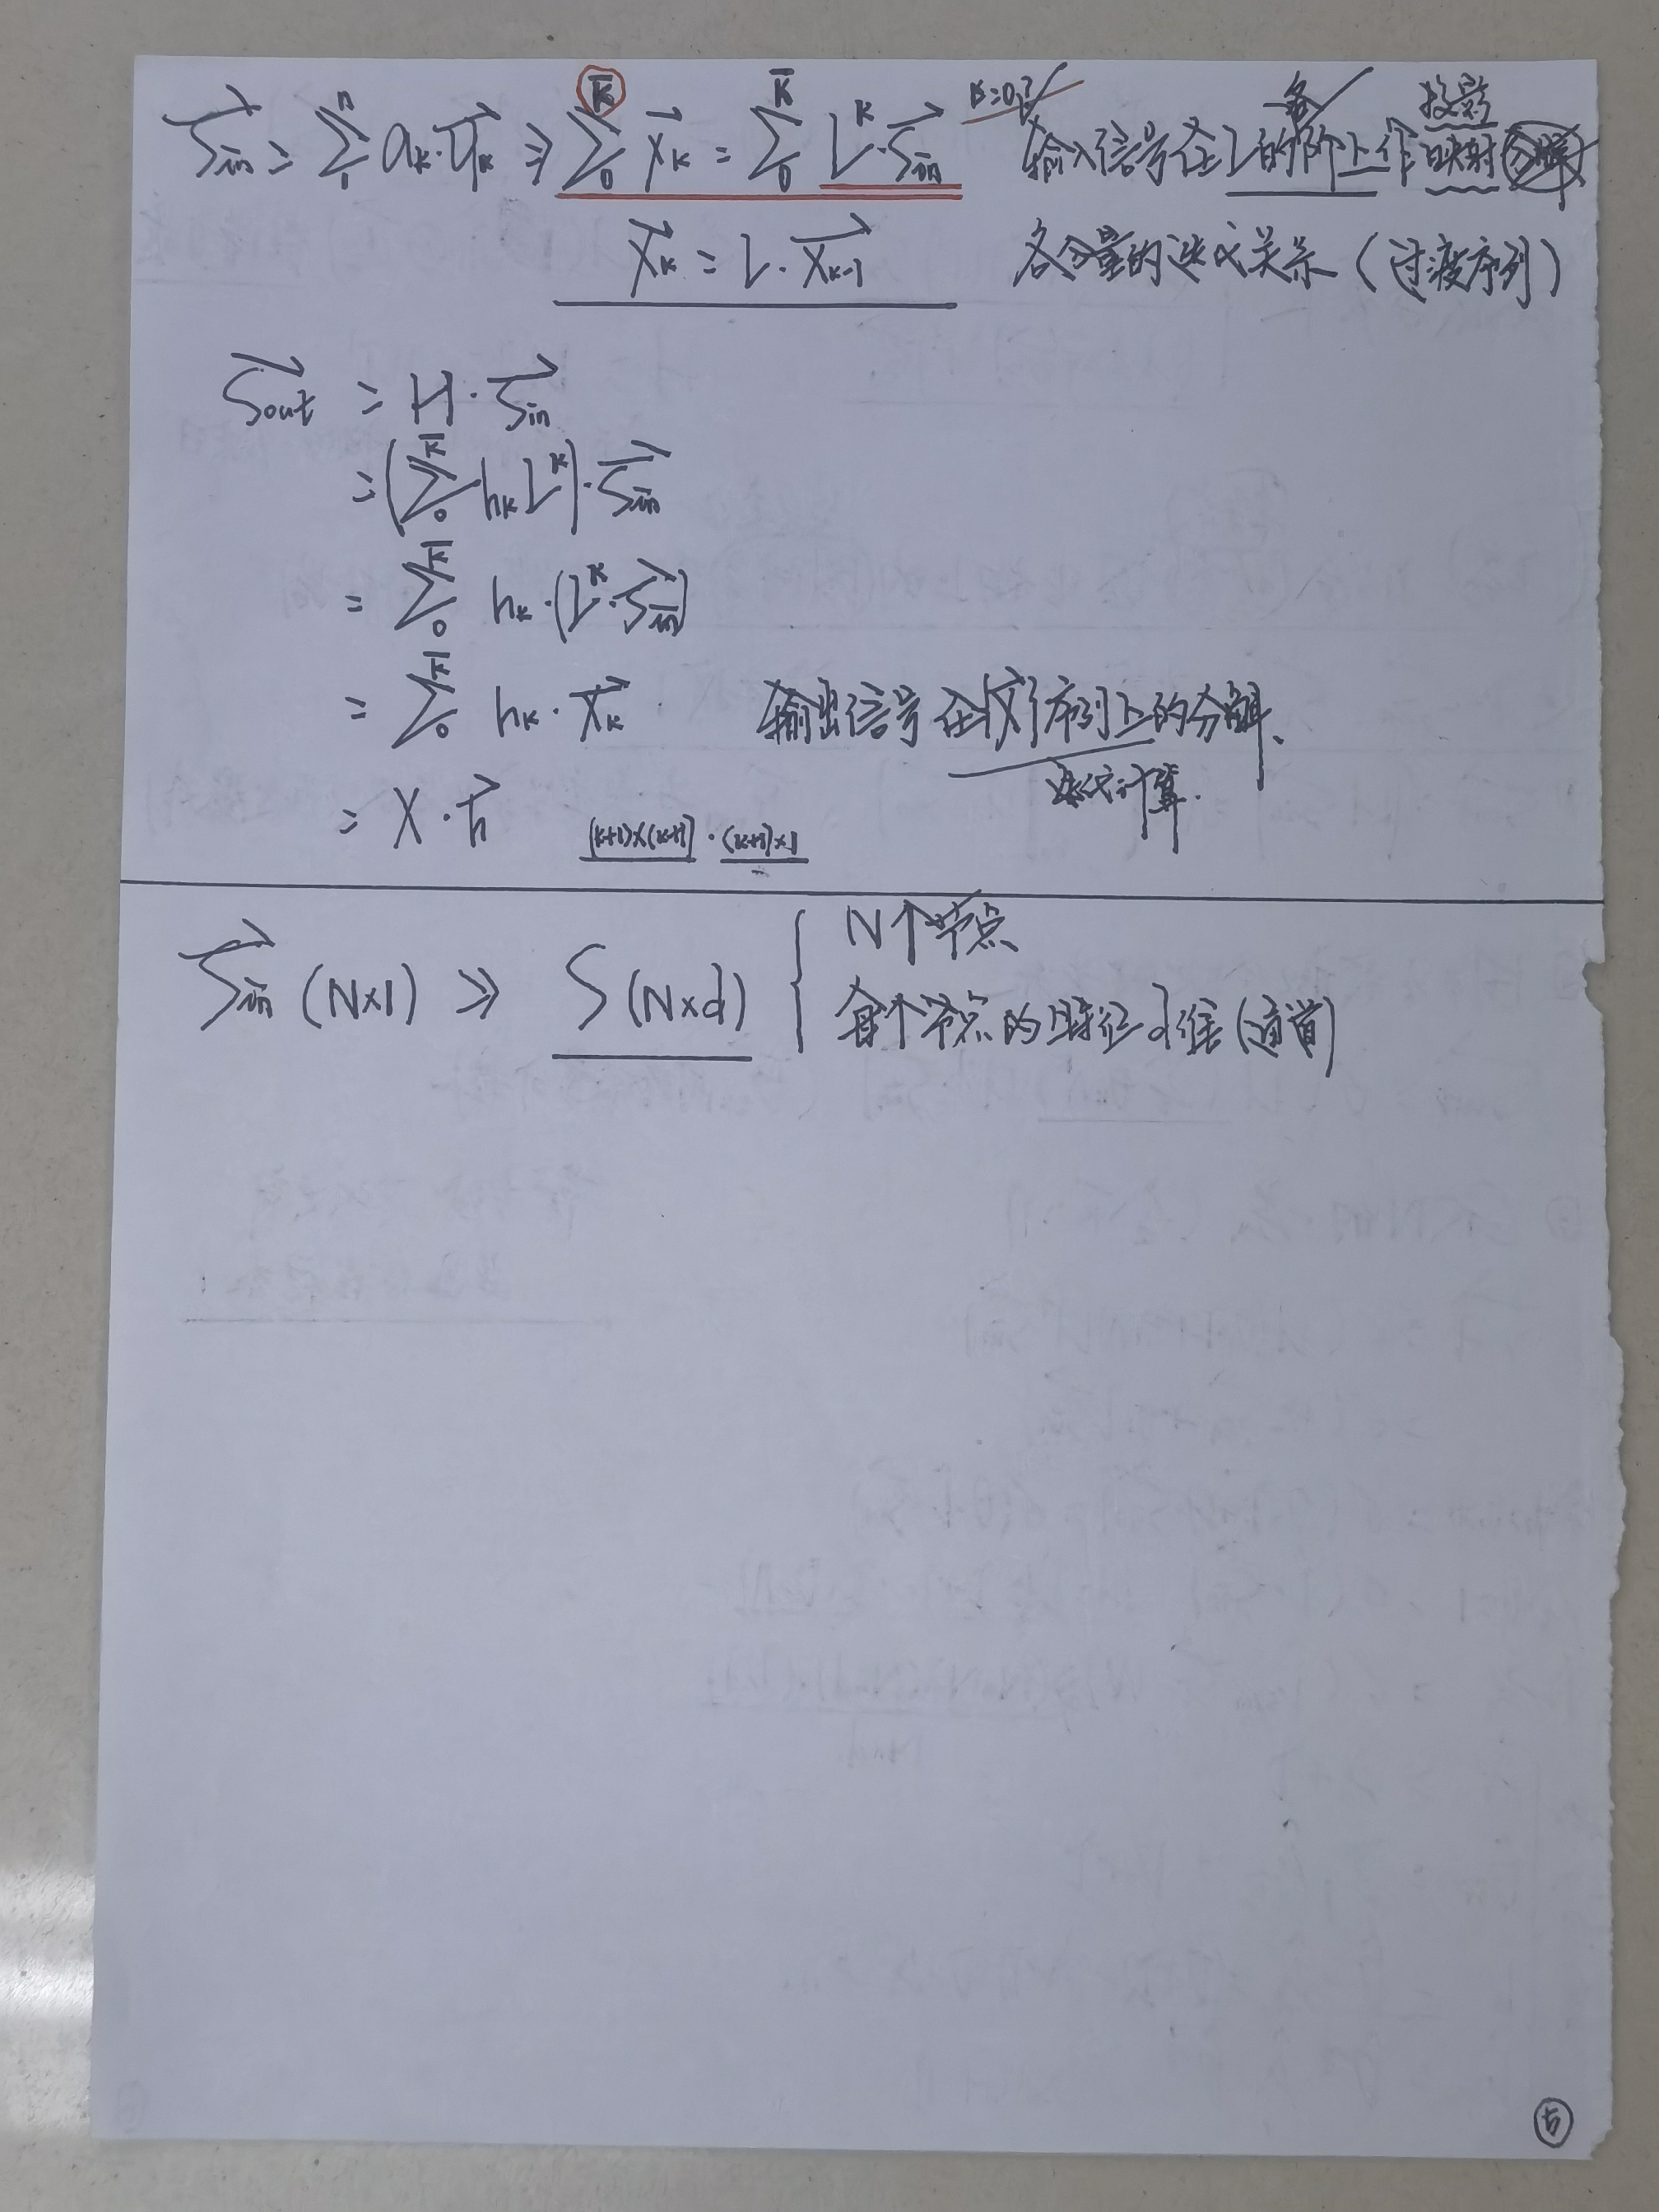 S⃗in = Σ₁ⁿ aₖ·q⃗ₖ ⇒ Σ₀ᴷ̄ x⃗ₖ = Σ₀ᴷ̄ Lᵏ·S⃗in K=0? 输入信号在L的各阶上作映射 投影
x⃗ₖ = L·x⃗ₖ₋₁ 各分量的迭代关系(过渡序列)
S⃗out = H·S⃗in
=(Σ₀ᴷ̄ hₖLᵏ)·S⃗in
= Σ₀ᴷ̄ hₖ·(Lᵏ·S⃗in)
= Σ₀ᴷ̄ hₖ·x⃗ₖ 输出信号在{x⃗}序列上的分解、
迭代计算.
= X·h⃗ (K+1)×(K+1)·(K+1)×1
S⃗in (N×1) ⇒ S (N×d) { N个节点
每个节点的特征d维(通道)
⑤